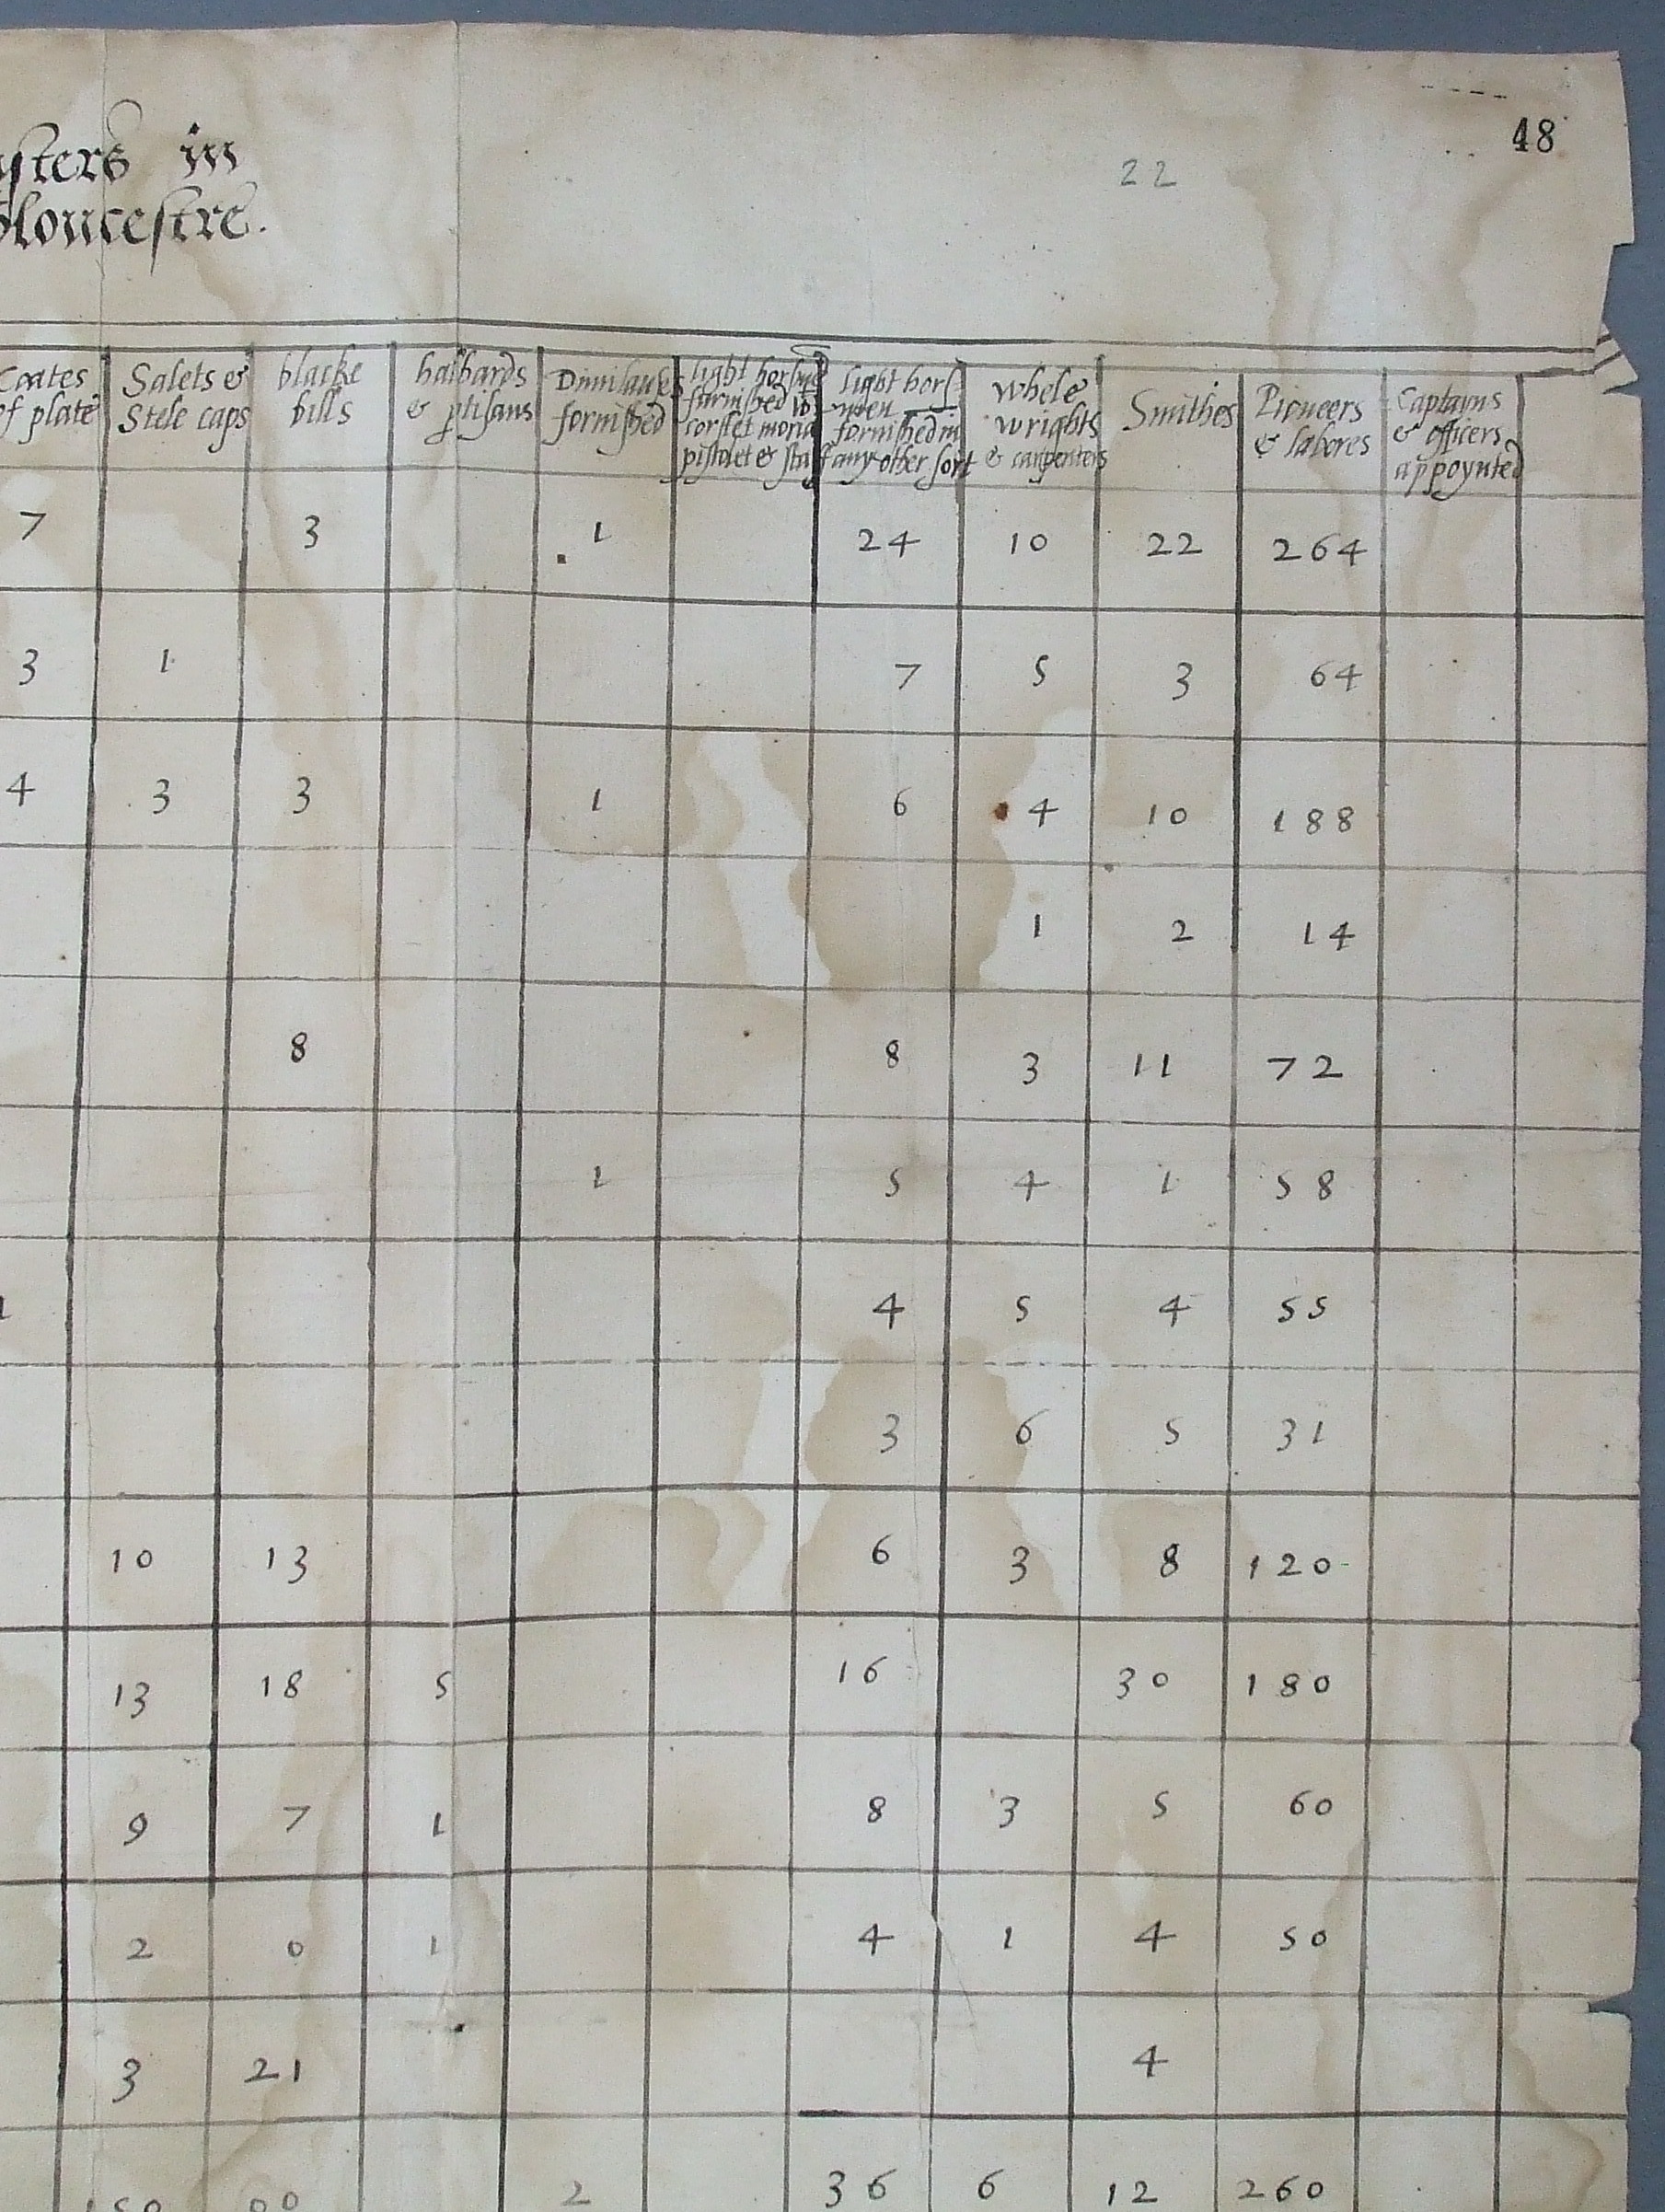 48
22
in
Gloucestre.
Coates of plate | Salets & Stele caps | blacke bills | halbards & ptisans | Dimilaunces fornished | light horsmen furnished wt corslet morian pistolet & staff | light horsmen fornished in any other sort | Whele wrights & carpenters | Smithes | Pioneers & labores | Captayns & officers appoynted
7 3 1 24 10 22 264
3 1 7 5 3 64
4 3 3 1 6 4 10 188
1 2 14
8 8 3 11 72
1 5 4 1 58
4 5 4 55
3 6 5 31
10 13 6 3 8 120
13 18 5 16 30 180
9 7 1 8 3 5 60
2 0 1 4 1 4 50
3 21 4
2 36 6 12 260